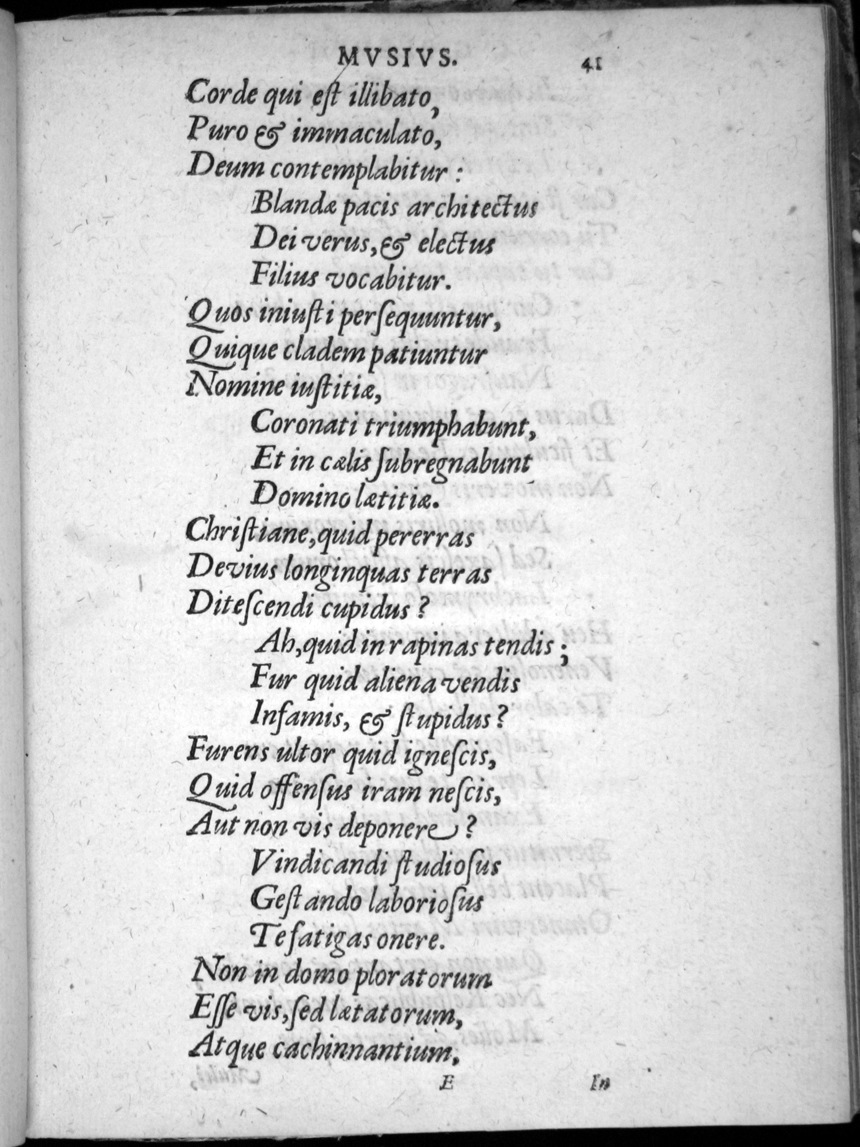 MVSIVS. 41
Corde qui eſt illibato,
Puro & immaculato,
Deum contemplabitur :
Blandæ pacis architectus
Dei verus, & electus
Filius vocabitur.
Quos iniuſti perſequuntur,
Quique cladem patiuntur
Nomine iuſtitiæ,
Coronati triumphabunt,
Et in cælis ſubregnabunt
Domino lætitiæ.
Chriſtiane, quid pererras
Devius longinquas terras
Diteſcendi cupidus ?
Ah, quid in rapinas tendis ;
Fur quid aliena vendis
Infamis, & ſtupidus ?
Furens ultor quid igneſcis,
Quid offenſus iram neſcis,
Aut non vis deponere ?
Vindicandi ſtudioſus
Geſtando laborioſus
Te fatigas onere.
Non in domo ploratorum
Eſſe vis, ſed lætatorum,
Atque cachinnantium,
E In